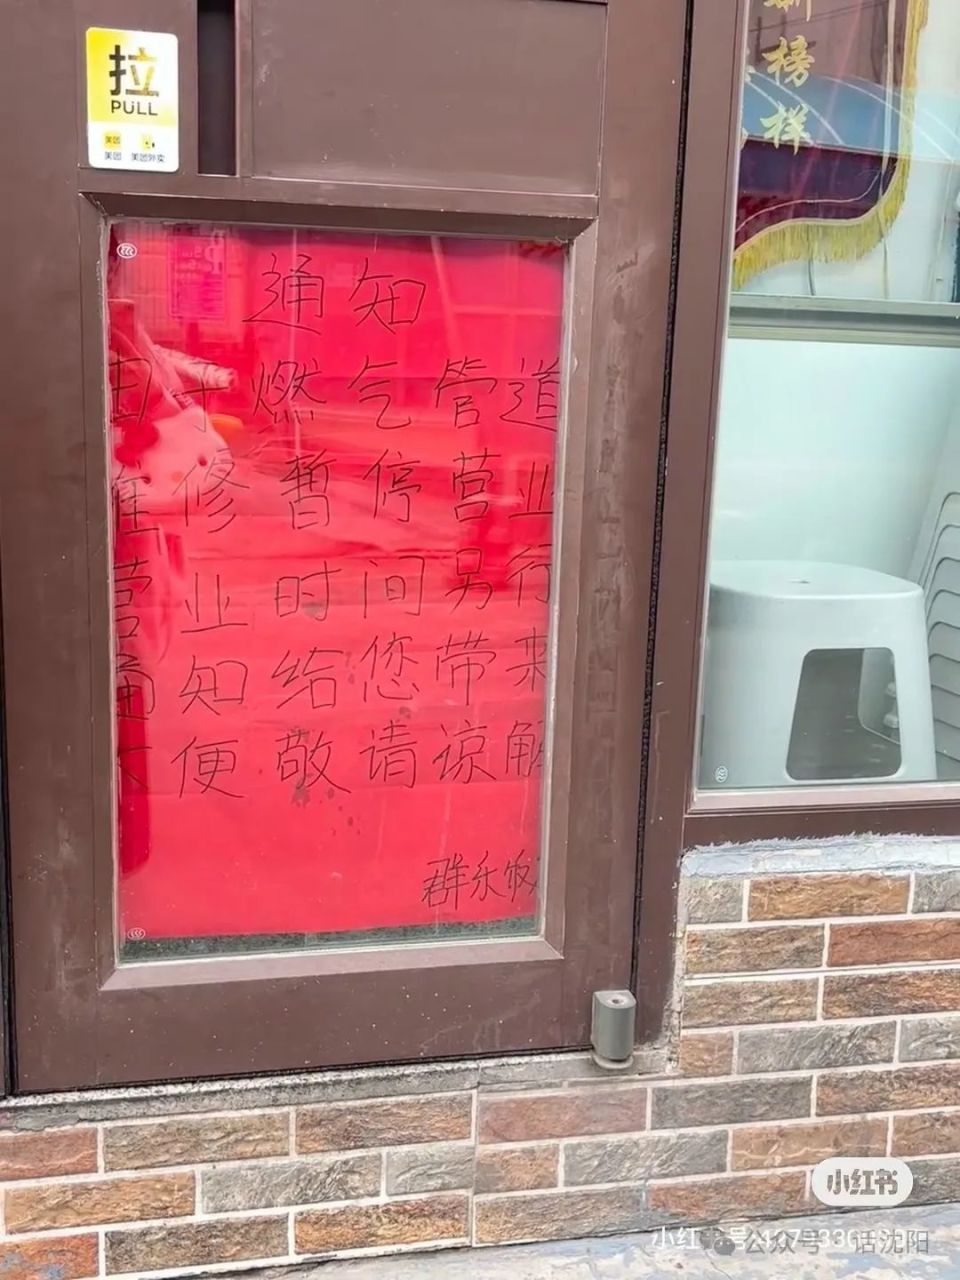 拉
PULL
美团
美团 美团外卖
榜
样
通知
由于燃气管道
维修暂停营业
营业时间另行
通知给您带来
不便敬请谅解
群乐饭
小红书
公众号 话沈阳